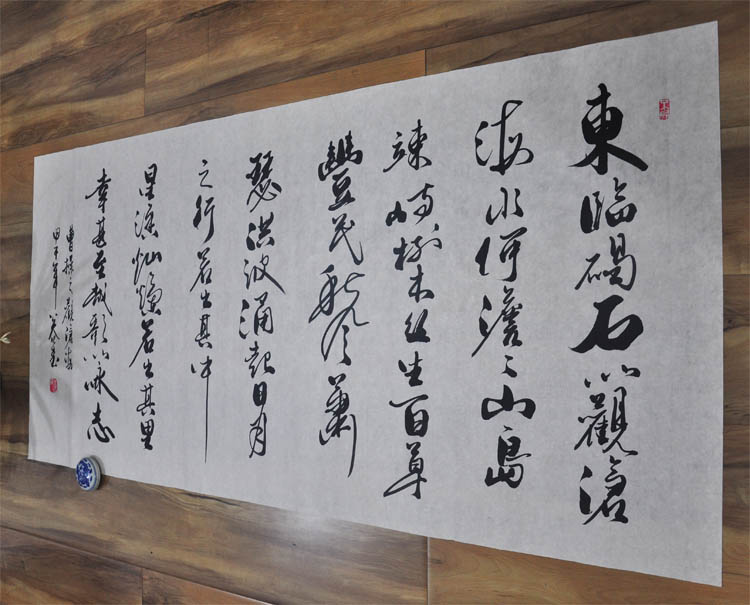 東臨碣石以觀滄
海水何澹〻山島
竦峙樹木丛生百草
豐茂秋风蕭
瑟洪波涌起日月
之行若出其中
星漢灿爛若出其里
幸甚至哉歌以咏志
曹操之觀滄海
甲午年